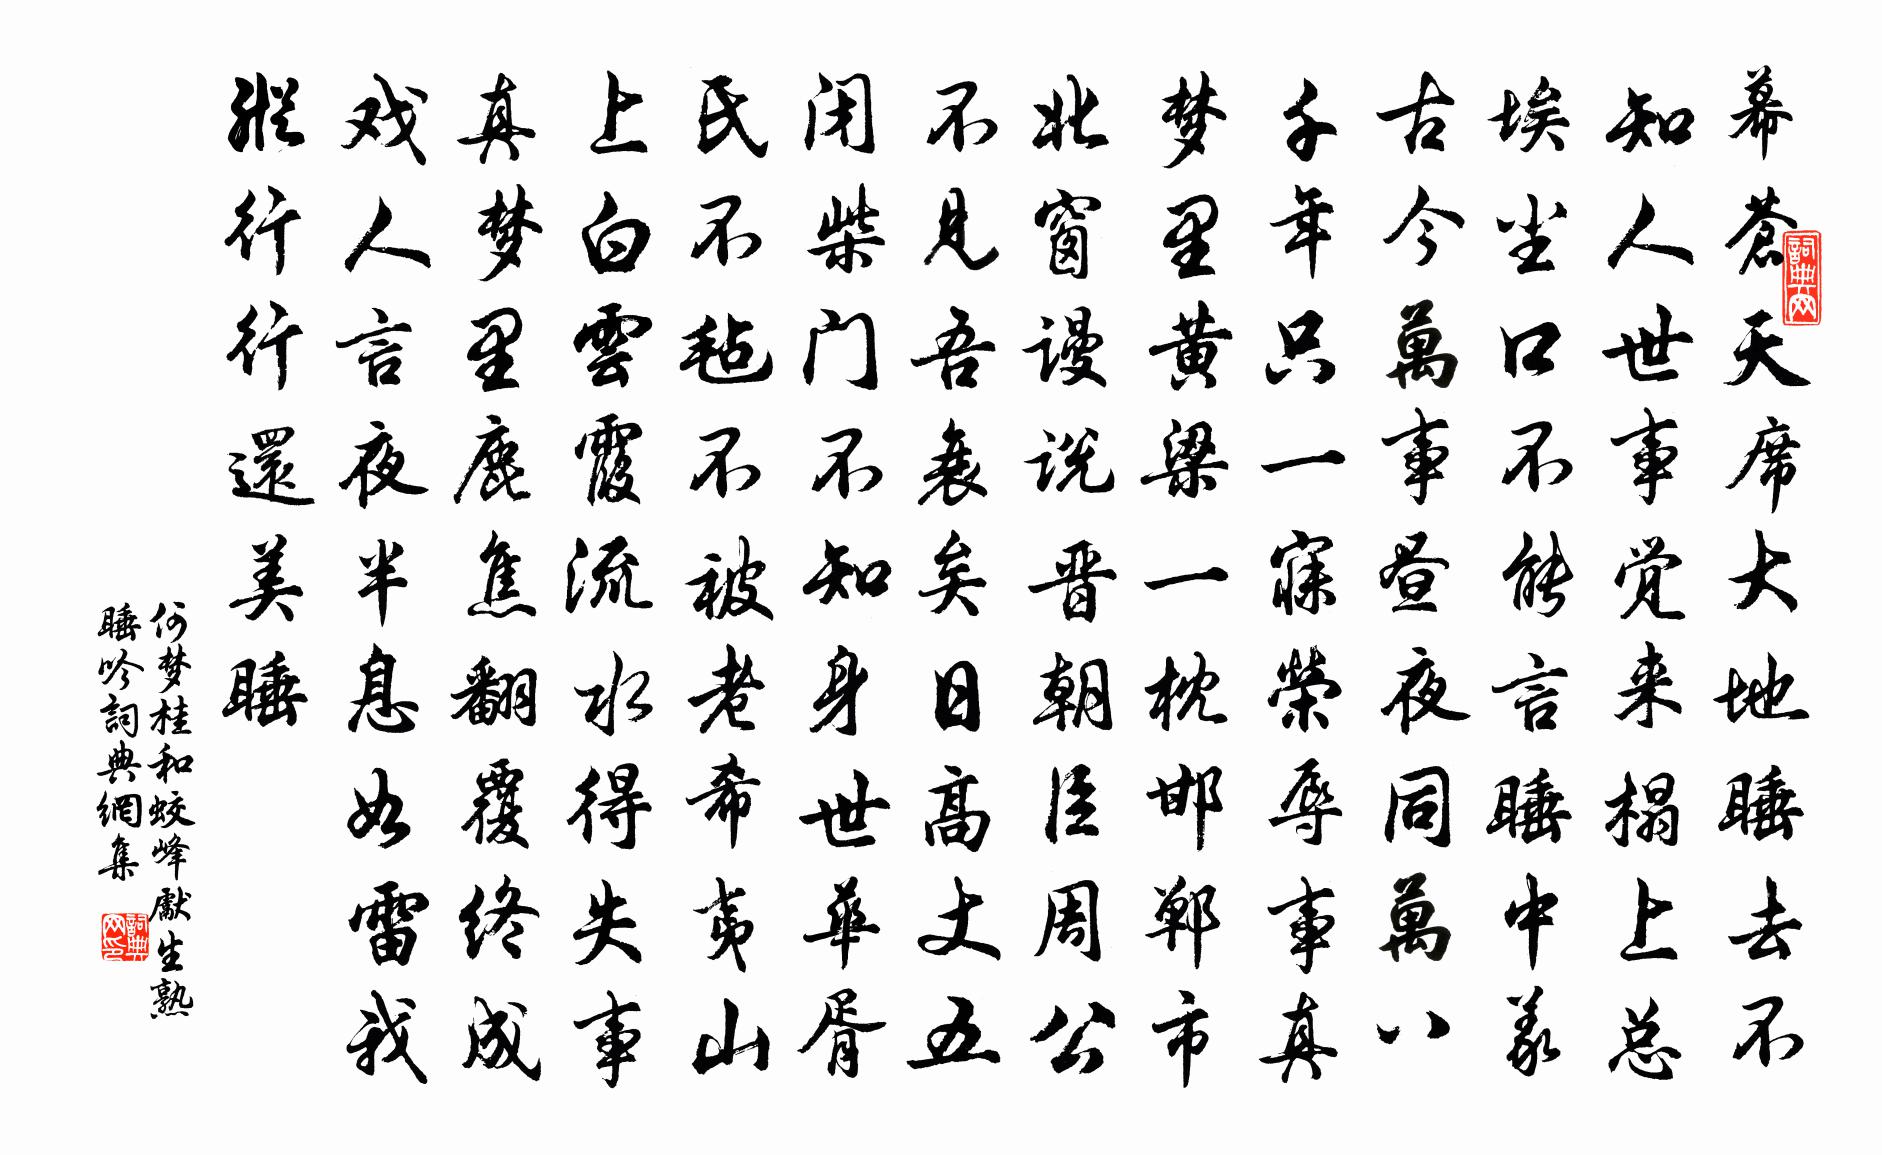 幕苍天席大地睡去不
知人世事觉来榻上总
埃尘口不能言睡中义
古今萬事昼夜同萬八
千年只一寐荣辱事真
梦里黄粱一枕邯郸市
北窗谩说晋朝臣周公
不见吾衰矣日高丈五
闭柴门不知身世华胥
氏不毡不被老希夷山
上白雲霞流水得失事
真梦里鹿焦翻覆终成
戏人言夜半息如雷我
縱行行還美睡
何梦桂和蛟峰獻生熟
睡吟詞典網集
詞典网
詞典网